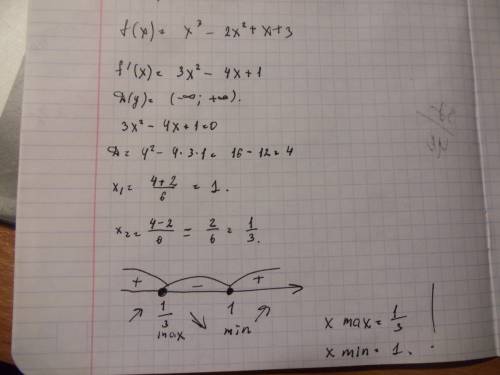 f(x) = x³ - 2x² + x + 3
f'(x) = 3x² - 4x + 1
D(y) = (-∞; +∞).
3x² - 4x + 1 = 0
D = 4² - 4·3·1 = 16 - 12 = 4
x₁ = (4+2)/6 = 1.
x₂ = (4-2)/6 = 2/6 = 1/3.
+ - +
1/3 1
max min
x max = 1/3
x min = 1.